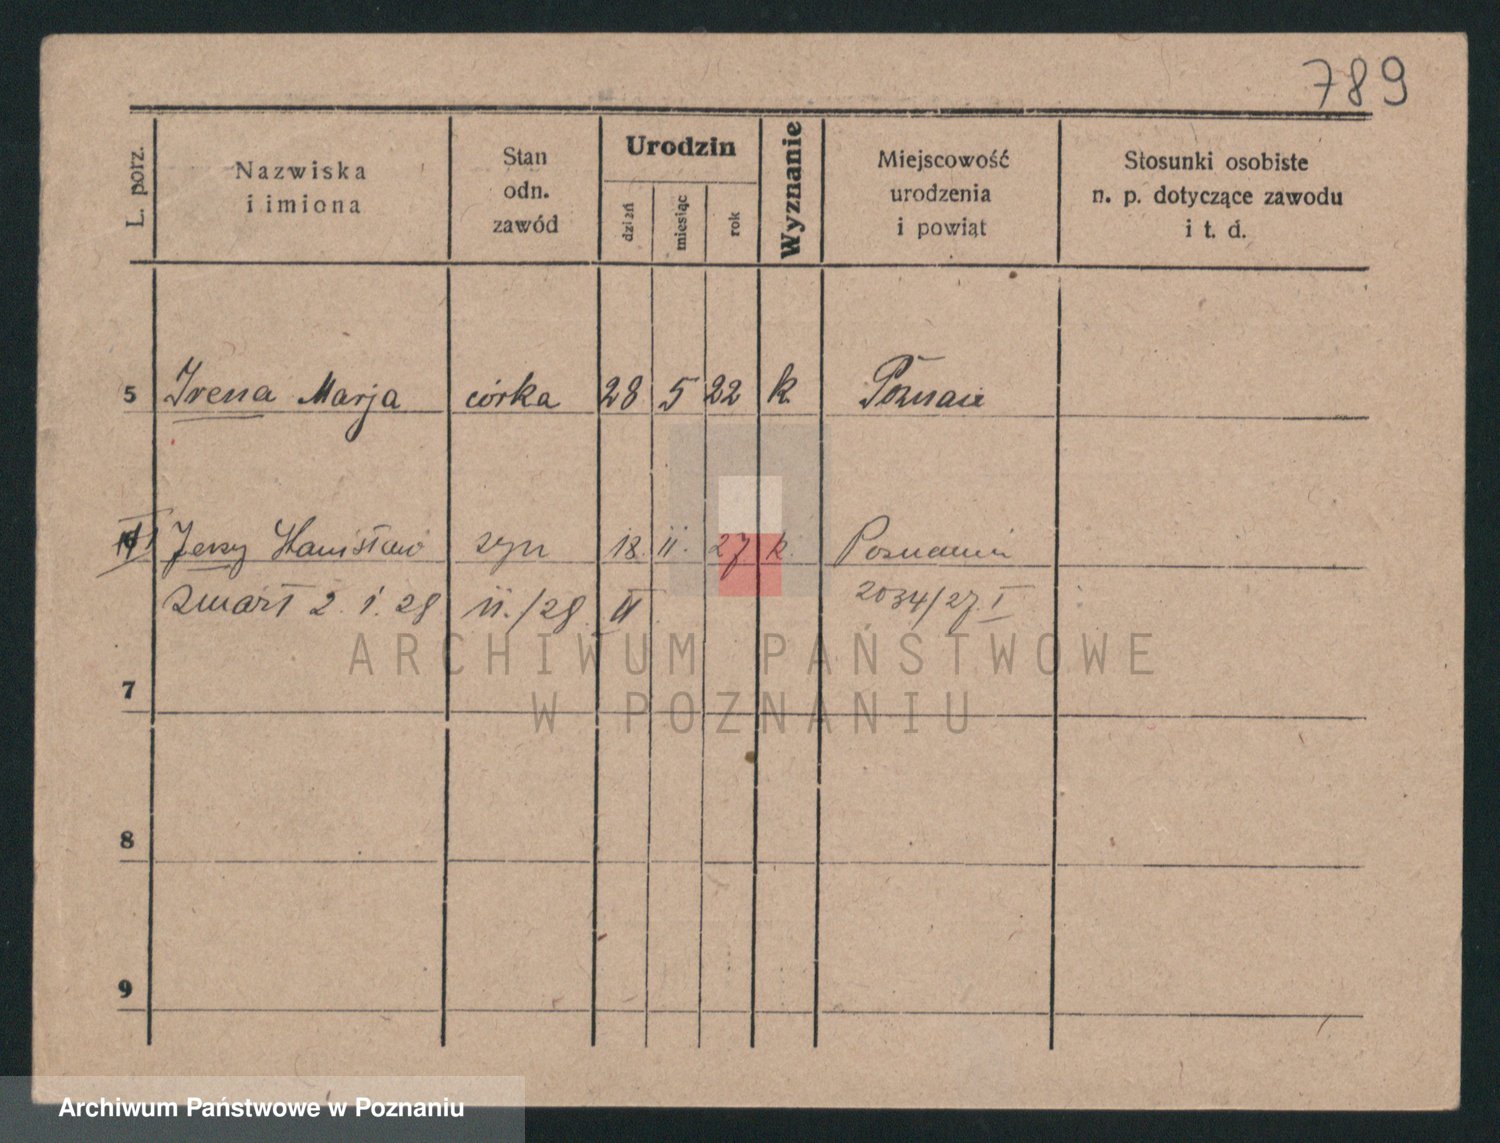 789
L. porz.
Nazwiska
i imiona
Stan
odn.
zawód
Urodzin
dzień
miesiąc
rok
Wyznanie
Miejscowość
urodzenia
i powiat
Stosunki osobiste
n. p. dotyczące zawodu
i t. d.
5 Irena Marja córka 28 5 22 k. Poznań
Jerzy Stanisław syn 18. 11. 27 k. Poznaniu
zmarł 2. 1. 28 11./28 II 2034/27 I
7
8
9
ARCHIWUM PAŃSTWOWE
W POZNANIU
Archiwum Państwowe w Poznaniu